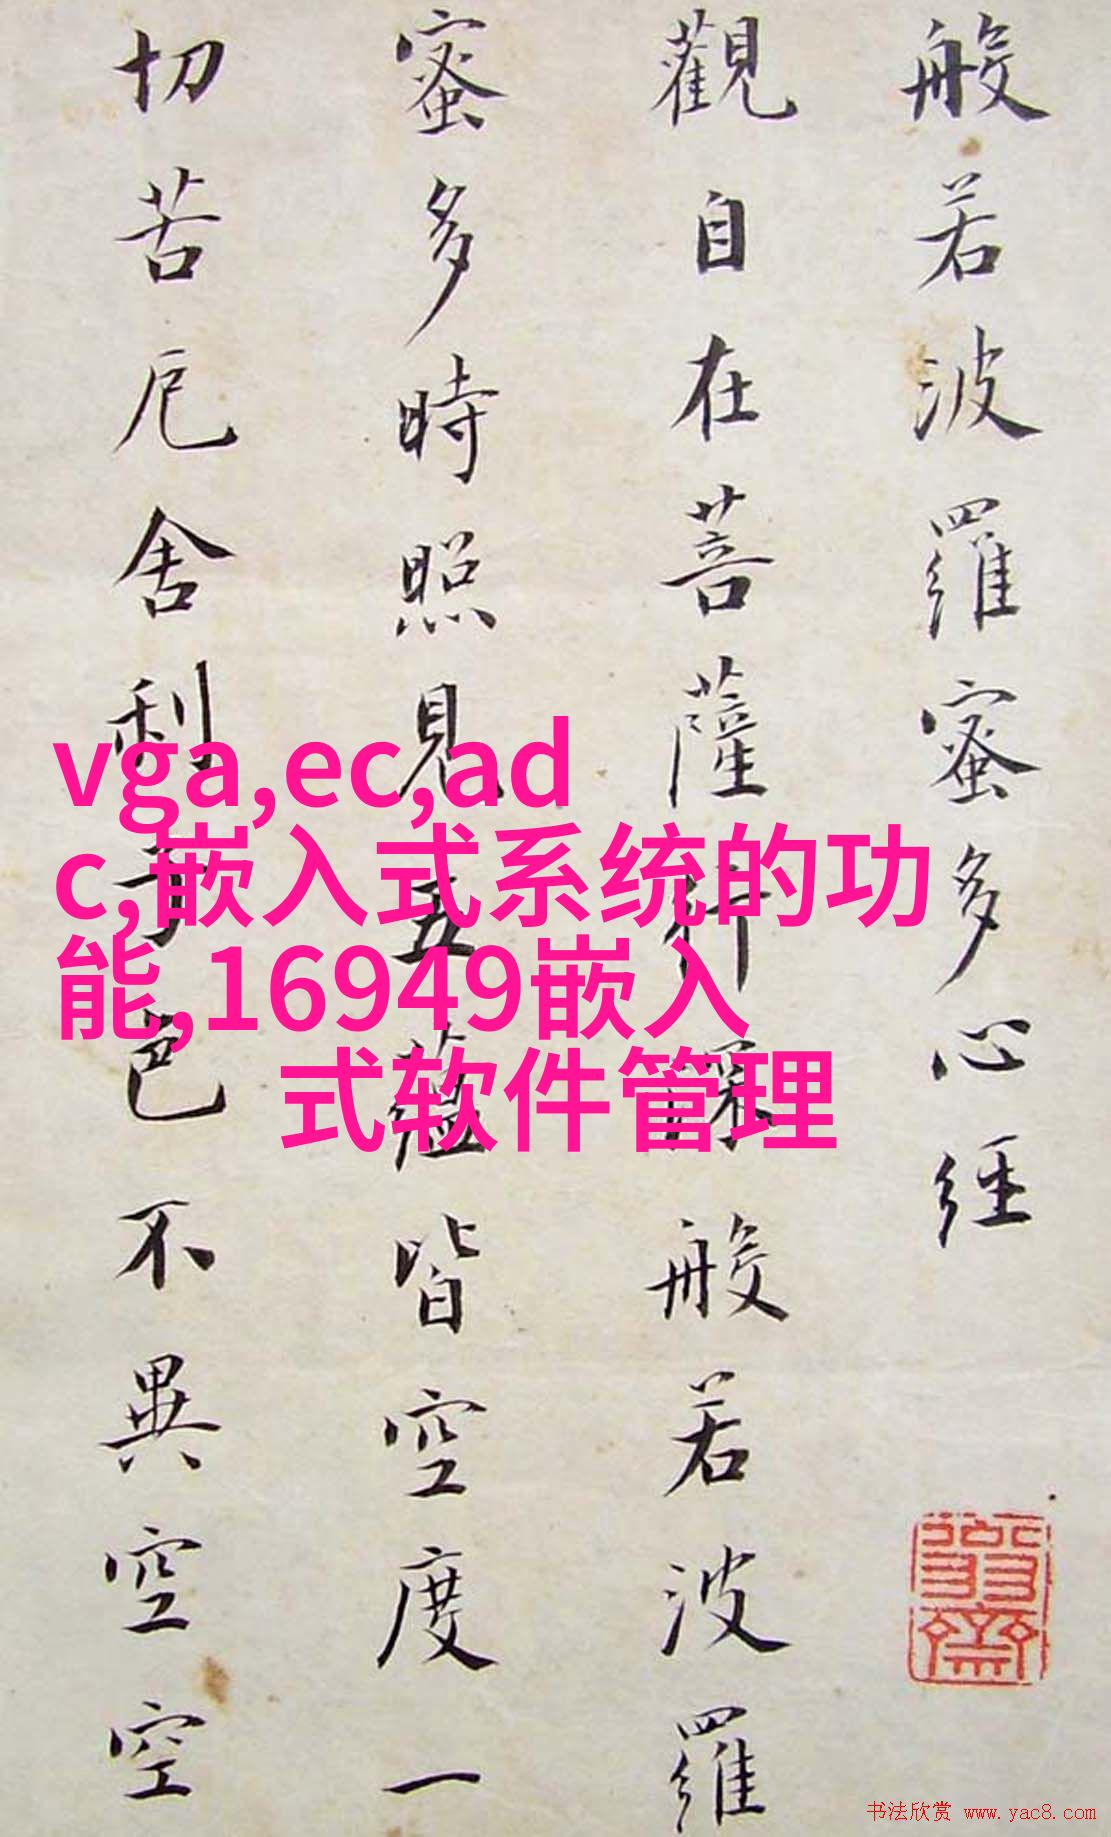 般若波羅蜜多心經
觀自在菩薩行深般若波羅
蜜多時照見五蘊皆空度一
切苦厄舍利子色不異空空
vga,ec,ad
c,嵌入式系统的功
能,16949嵌入
式软件管理
书法欣赏 www.yac8.com